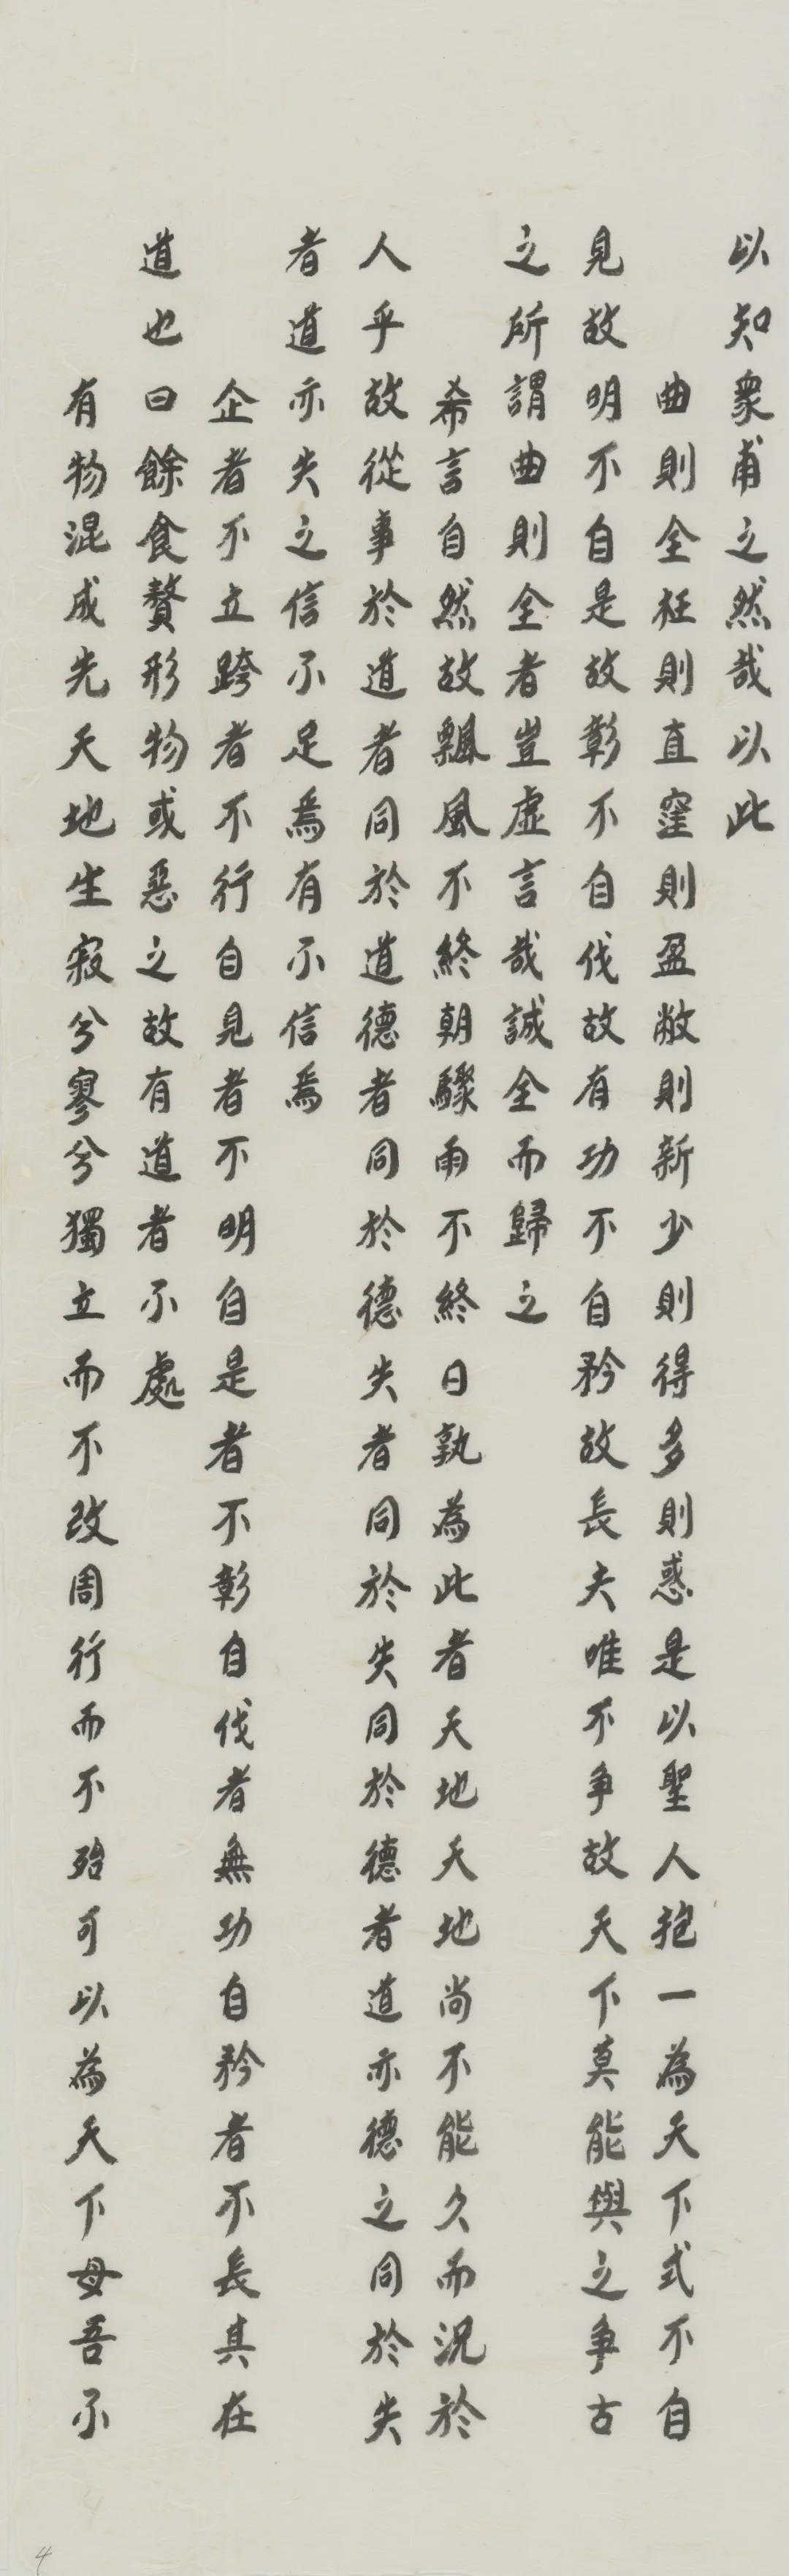 以知衆甫之然哉以此
曲則全枉則直窪則盈敝則新少則得多則惑是以聖人抱一為天下式不自
見故明不自是故彰不自伐故有功不自矜故長夫唯不争故天下莫能與之争古
之所謂曲則全者豈虛言哉誠全而歸之
希言自然故飄風不終朝驟雨不終日孰為此者天地天地尚不能久而況於
人乎故從事於道者同於道德者同於德失者同於失同於德者道亦德之同於失
者道亦失之信不足焉有不信焉
企者不立跨者不行自見者不明自是者不彰自伐者無功自矜者不長其在
道也曰餘食贅形物或惡之故有道者不處
有物混成先天地生寂兮寥兮獨立而不改周行而不殆可以為天下母吾不
4